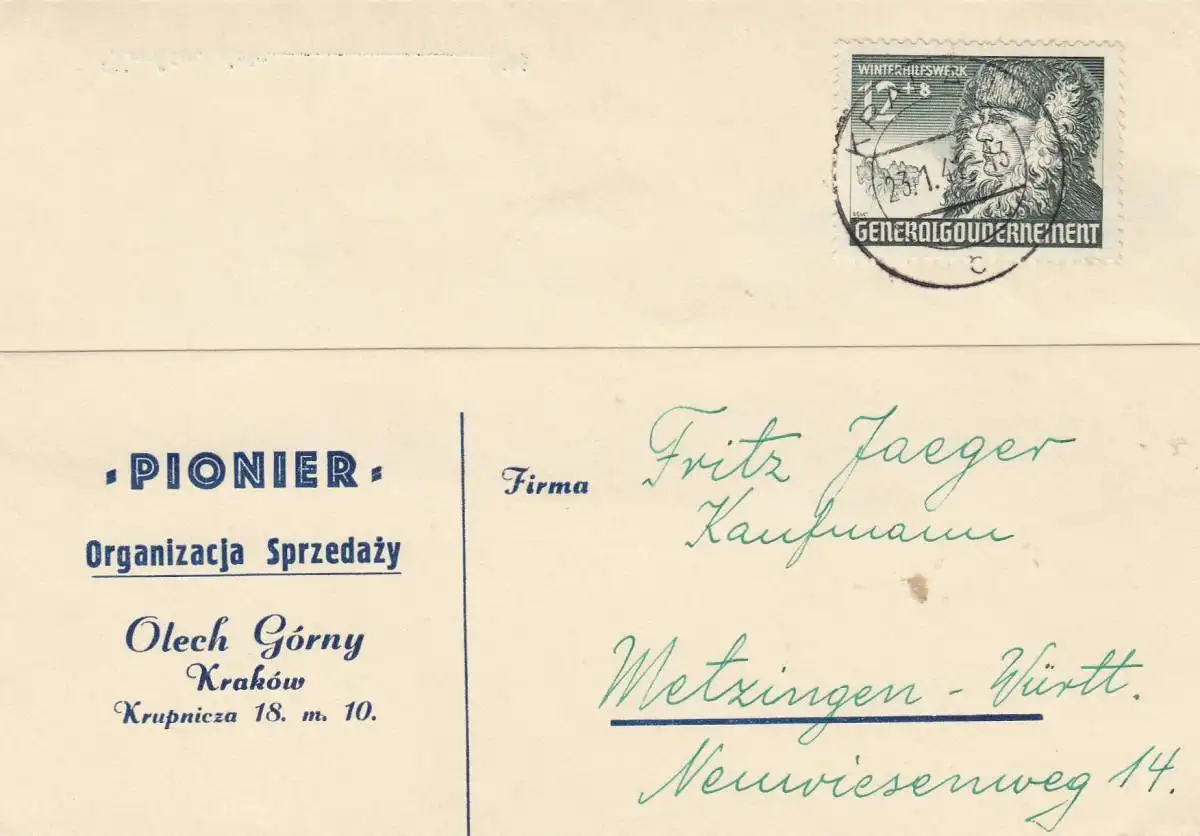 WINTERHILFSWERK
12+8
GENERALGOUVERNEMENT
c
PIONIER
Organizacja Sprzedaży
Olech Górny
Kraków
Krupnicza 18. m. 10.
Firma
Fritz Jaeger
Kaufmann
Metzingen - Württ.
Neuwiesenweg 14.